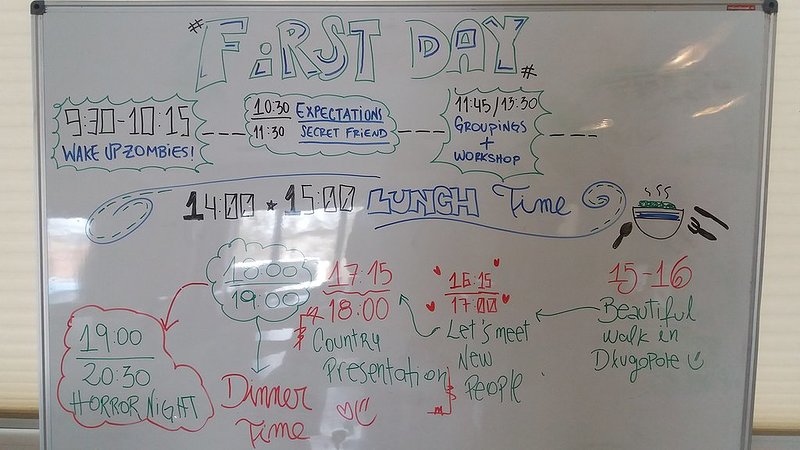 # FiRST DAY #
9:30-10:15
WAKE UP ZOMBIES!
10:30 EXPECTATIONS
11:30 SECRET FRIEND
11:45/13:30
GROUPINGS
+
WORKSHOP
14:00 * 15:00 LUNCH Time
15-16
Beautiful
walk in
Długopole
16:15
17:00
Let's meet
New
People
17:15
18:00
Country
Presentation
18:00
19:00
Dinner
Time
19:00
20:30
HORROR NIGHT